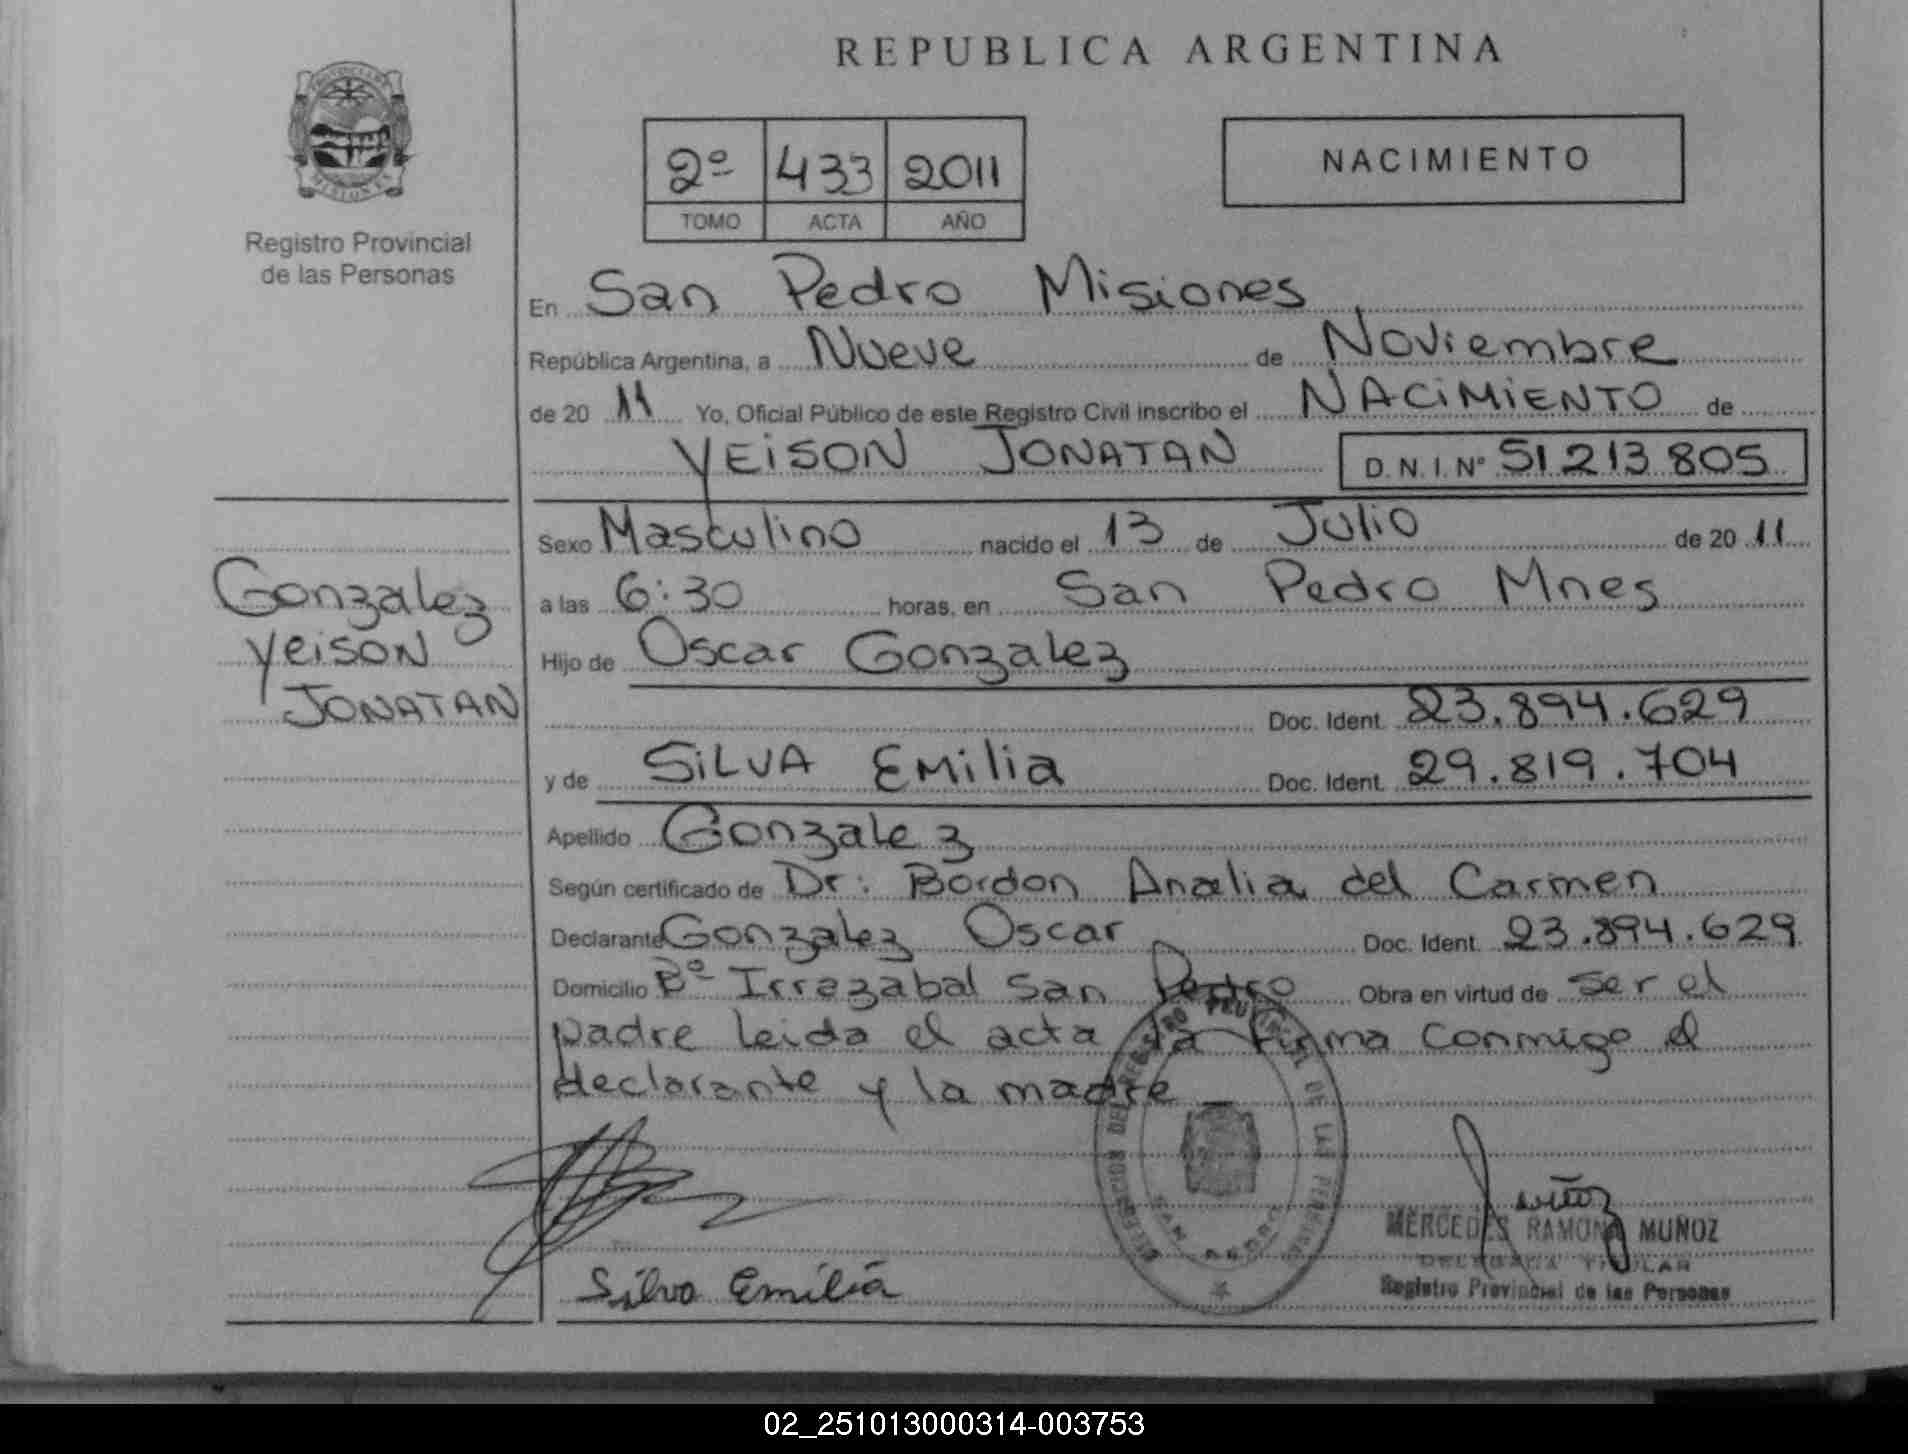 REPUBLICA ARGENTINA
PROVINCIA DE
MISIONES
Registro Provincial
de las Personas
2º 433 2011
TOMO ACTA AÑO
NACIMIENTO
En San Pedro Misiones
República Argentina, a Nueve de Noviembre
de 20 11 Yo, Oficial Público de este Registro Civil inscribo el NACIMIENTO de
YEISON JONATAN D.N.I. Nº 51.213.805
Sexo Masculino nacido el 13 de Julio de 20 11
a las 6:30 horas, en San Pedro Mnes
Hijo de Oscar Gonzalez
Doc. Ident. 23.894.629
y de SILVA Emilia Doc. Ident. 29.819.704
Apellido Gonzalez
Según certificado de Dr: Bordon Analia del Carmen
Declarante Gonzalez Oscar Doc. Ident. 23.894.629
Domicilio Bº Irrazabal San Pedro Obra en virtud de ser el
padre leida el acta la firma conmigo el
declarante y la madre
Gonzalez
Yeison
JONATAN
Silva Emilia
SAN PEDRO
MERCEDES RAMONA MUÑOZ
DELEGADA TITULAR
Registro Provincial de las Personas
02_251013000314-003753